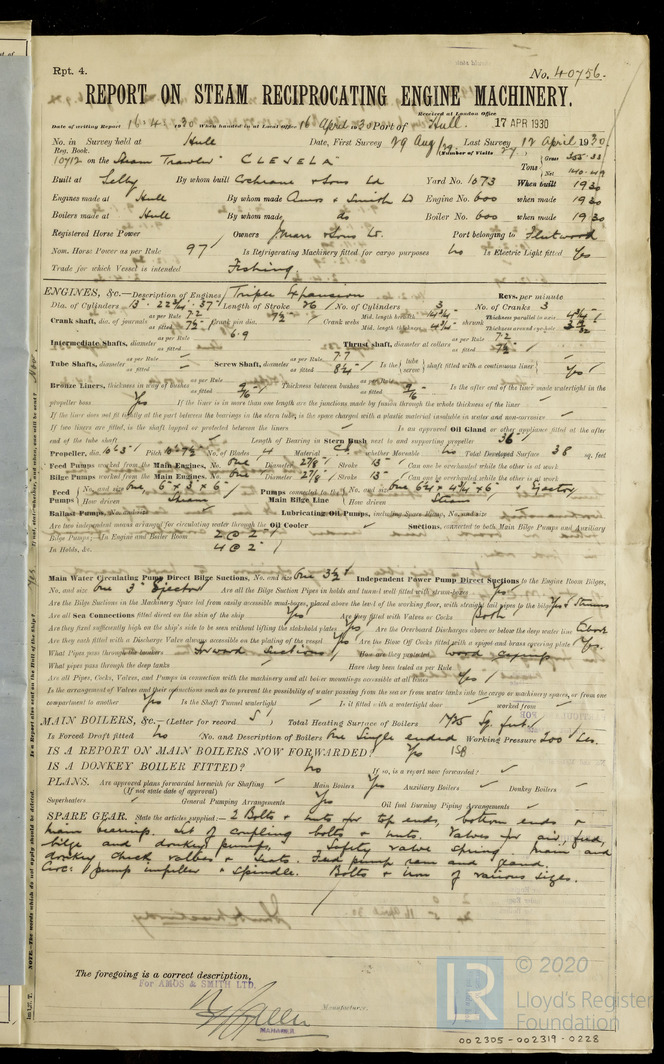 Rpt. 4.
No. 40756.
REPORT ON STEAM RECIPROCATING ENGINE MACHINERY.
Received at London Office
17 APR 1930
Date of writing Report 16.4.1930 When handed in at Local Office 16 April 30 Port of Hull.
No. in Survey held at Hull Date, First Survey 29 Aug/29 Last Survey 12 April 1930
Reg. Book. (Number of Visits 27)
10712 on the Steam Trawler "CLEVELA" Tons Gross 355.33
Net 140.49
Built at Selby By whom built Cochrane & Sons Ld Yard No. 1073 When built 1930
Engines made at Hull By whom made Amos & Smith Ld Engine No. 600 when made 1930
Boilers made at Hull By whom made do Boiler No. 600 when made 1930
Registered Horse Power Owners J Marr & Sons Ld. Port belonging to Fleetwood
Nom. Horse Power as per Rule 97 Is Refrigerating Machinery fitted for cargo purposes No Is Electric Light fitted Yes
Trade for which Vessel is intended Fishing
ENGINES, &c.—Description of Engines Triple Expansion Revs. per minute
Dia. of Cylinders 13"- 22¾"- 37" Length of Stroke 26" No. of Cylinders 3 No. of Cranks 3
Crank shaft, dia. of journals as per Rule 7.2 as fitted 7½" Crank pin dia. 7½" Crank webs Mid. length breadth Mid. length thickness 4¾" shrunk Thickness parallel to axis 4¾" Thickness around eye-hole
Intermediate Shafts, diameter as per Rule 6.9 as fitted Thrust shaft, diameter at collars as per Rule 7.2 as fitted 7½"
Tube Shafts, diameter as per Rule as fitted Screw Shaft, diameter as per Rule 7.7 as fitted 8¼" Is the tube screw shaft fitted with a continuous liner Yes
Bronze Liners, thickness in way of bushes as per Rule as fitted 9/16" Thickness between bushes as per Rule as fitted 9/16" Is the after end of the liner made watertight in the
propeller boss Yes If the liner is in more than one length are the junctions made by fusion through the whole thickness of the liner
If the liner does not fit tightly at the part between the bearings in the stern tube, is the space charged with a plastic material insoluble in water and non-corrosive
If two liners are fitted, is the shaft lapped or protected between the liners Is an approved Oil Gland or other appliance fitted at the after
end of the tube shaft Length of Bearing in Stern Bush next to and supporting propeller 36"
Propeller, dia. 10'-3" Pitch 10'-7½" No. of Blades 4 Material C.I. whether Moveable No Total Developed Surface 38 sq. feet
Feed Pumps worked from the Main Engines, No. One Diameter 2⅞" Stroke 13" Can one be overhauled while the other is at work
Bilge Pumps worked from the Main Engines, No. One Diameter 2⅞" Stroke 13" Can one be overhauled while the other is at work
Feed Pumps No. and size One 6" x 3" x 6" How driven Steam Pumps connected to the Main Bilge Line No. and size One 6¼ x 4¾ x 6" Ejector How driven Steam
Ballast Pumps, No. and size Lubricating Oil Pumps, including Spare Pump, No. and size
Are two independent means arranged for circulating water through the Oil Cooler Suctions, connected to both Main Bilge Pumps and Auxiliary
Bilge Pumps;—In Engine and Boiler Room 2 @ 2"
In Holds, &c. 4 @ 2"
Main Water Circulating Pump Direct Bilge Suctions, No. and size One 3½" Independent Power Pump Direct Suctions to the Engine Room Bilges,
No. and size One 3" Ejector Are all the Bilge Suction Pipes in holds and tunnel well fitted with strum-boxes Yes
Are the Bilge Suctions in the Machinery Space led from easily accessible mud-boxes, placed above the level of the working floor, with straight tail pipes to the bilges Yes & Strums
Are all Sea Connections fitted direct on the skin of the ship Yes Are they fitted with Valves or Cocks Both
Are they fixed sufficiently high on the ship's side to be seen without lifting the stokehold plates Yes Are the Overboard Discharges above or below the deep water line Above
Are they each fitted with a Discharge Valve always accessible on the plating of the vessel Yes Are the Blow Off Cocks fitted with a spigot and brass covering plate Yes
What Pipes pass through the bunkers Forward Suctions How are they protected Wood casing
What pipes pass through the deep tanks Have they been tested as per Rule
Are all Pipes, Cocks, Valves, and Pumps in connection with the machinery and all boiler mountings accessible at all times Yes
Is the arrangement of Valves and their connections such as to prevent the possibility of water passing from the sea or from water tanks into the cargo or machinery spaces, or from one
compartment to another Yes Is the Shaft Tunnel watertight Is it fitted with a watertight door worked from
MAIN BOILERS, &c.—(Letter for record S) Total Heating Surface of Boilers 1725 Sq. feet
Is Forced Draft fitted No No. and Description of Boilers One Single ended Working Pressure 200 Lbs.
IS A REPORT ON MAIN BOILERS NOW FORWARDED? Yes 1SB
IS A DONKEY BOILER FITTED? No If so, is a report now forwarded?
PLANS. Are approved plans forwarded herewith for Shafting Main Boilers Yes Auxiliary Boilers Donkey Boilers
(If not state date of approval)
Superheaters General Pumping Arrangements Yes Oil fuel Burning Piping Arrangements
SPARE GEAR. State the articles supplied:— 2 Bolts & nuts for top ends, bottom ends &
main bearings. Set of coupling bolts & nuts. Valves for air, feed,
bilge and donkey pumps. Safety valve spring. Main and
donkey check valves & seats. Feed pump ram and gland.
Circ: pump impeller & spindle. Bolts & iron of various sizes.
The foregoing is a correct description,
For AMOS & SMITH LTD.
Manufacturer.
MANAGER
NOTE.—The words which do not apply should be deleted.
© 2020
LR
Lloyd's Register
Foundation
002305-002319-0228